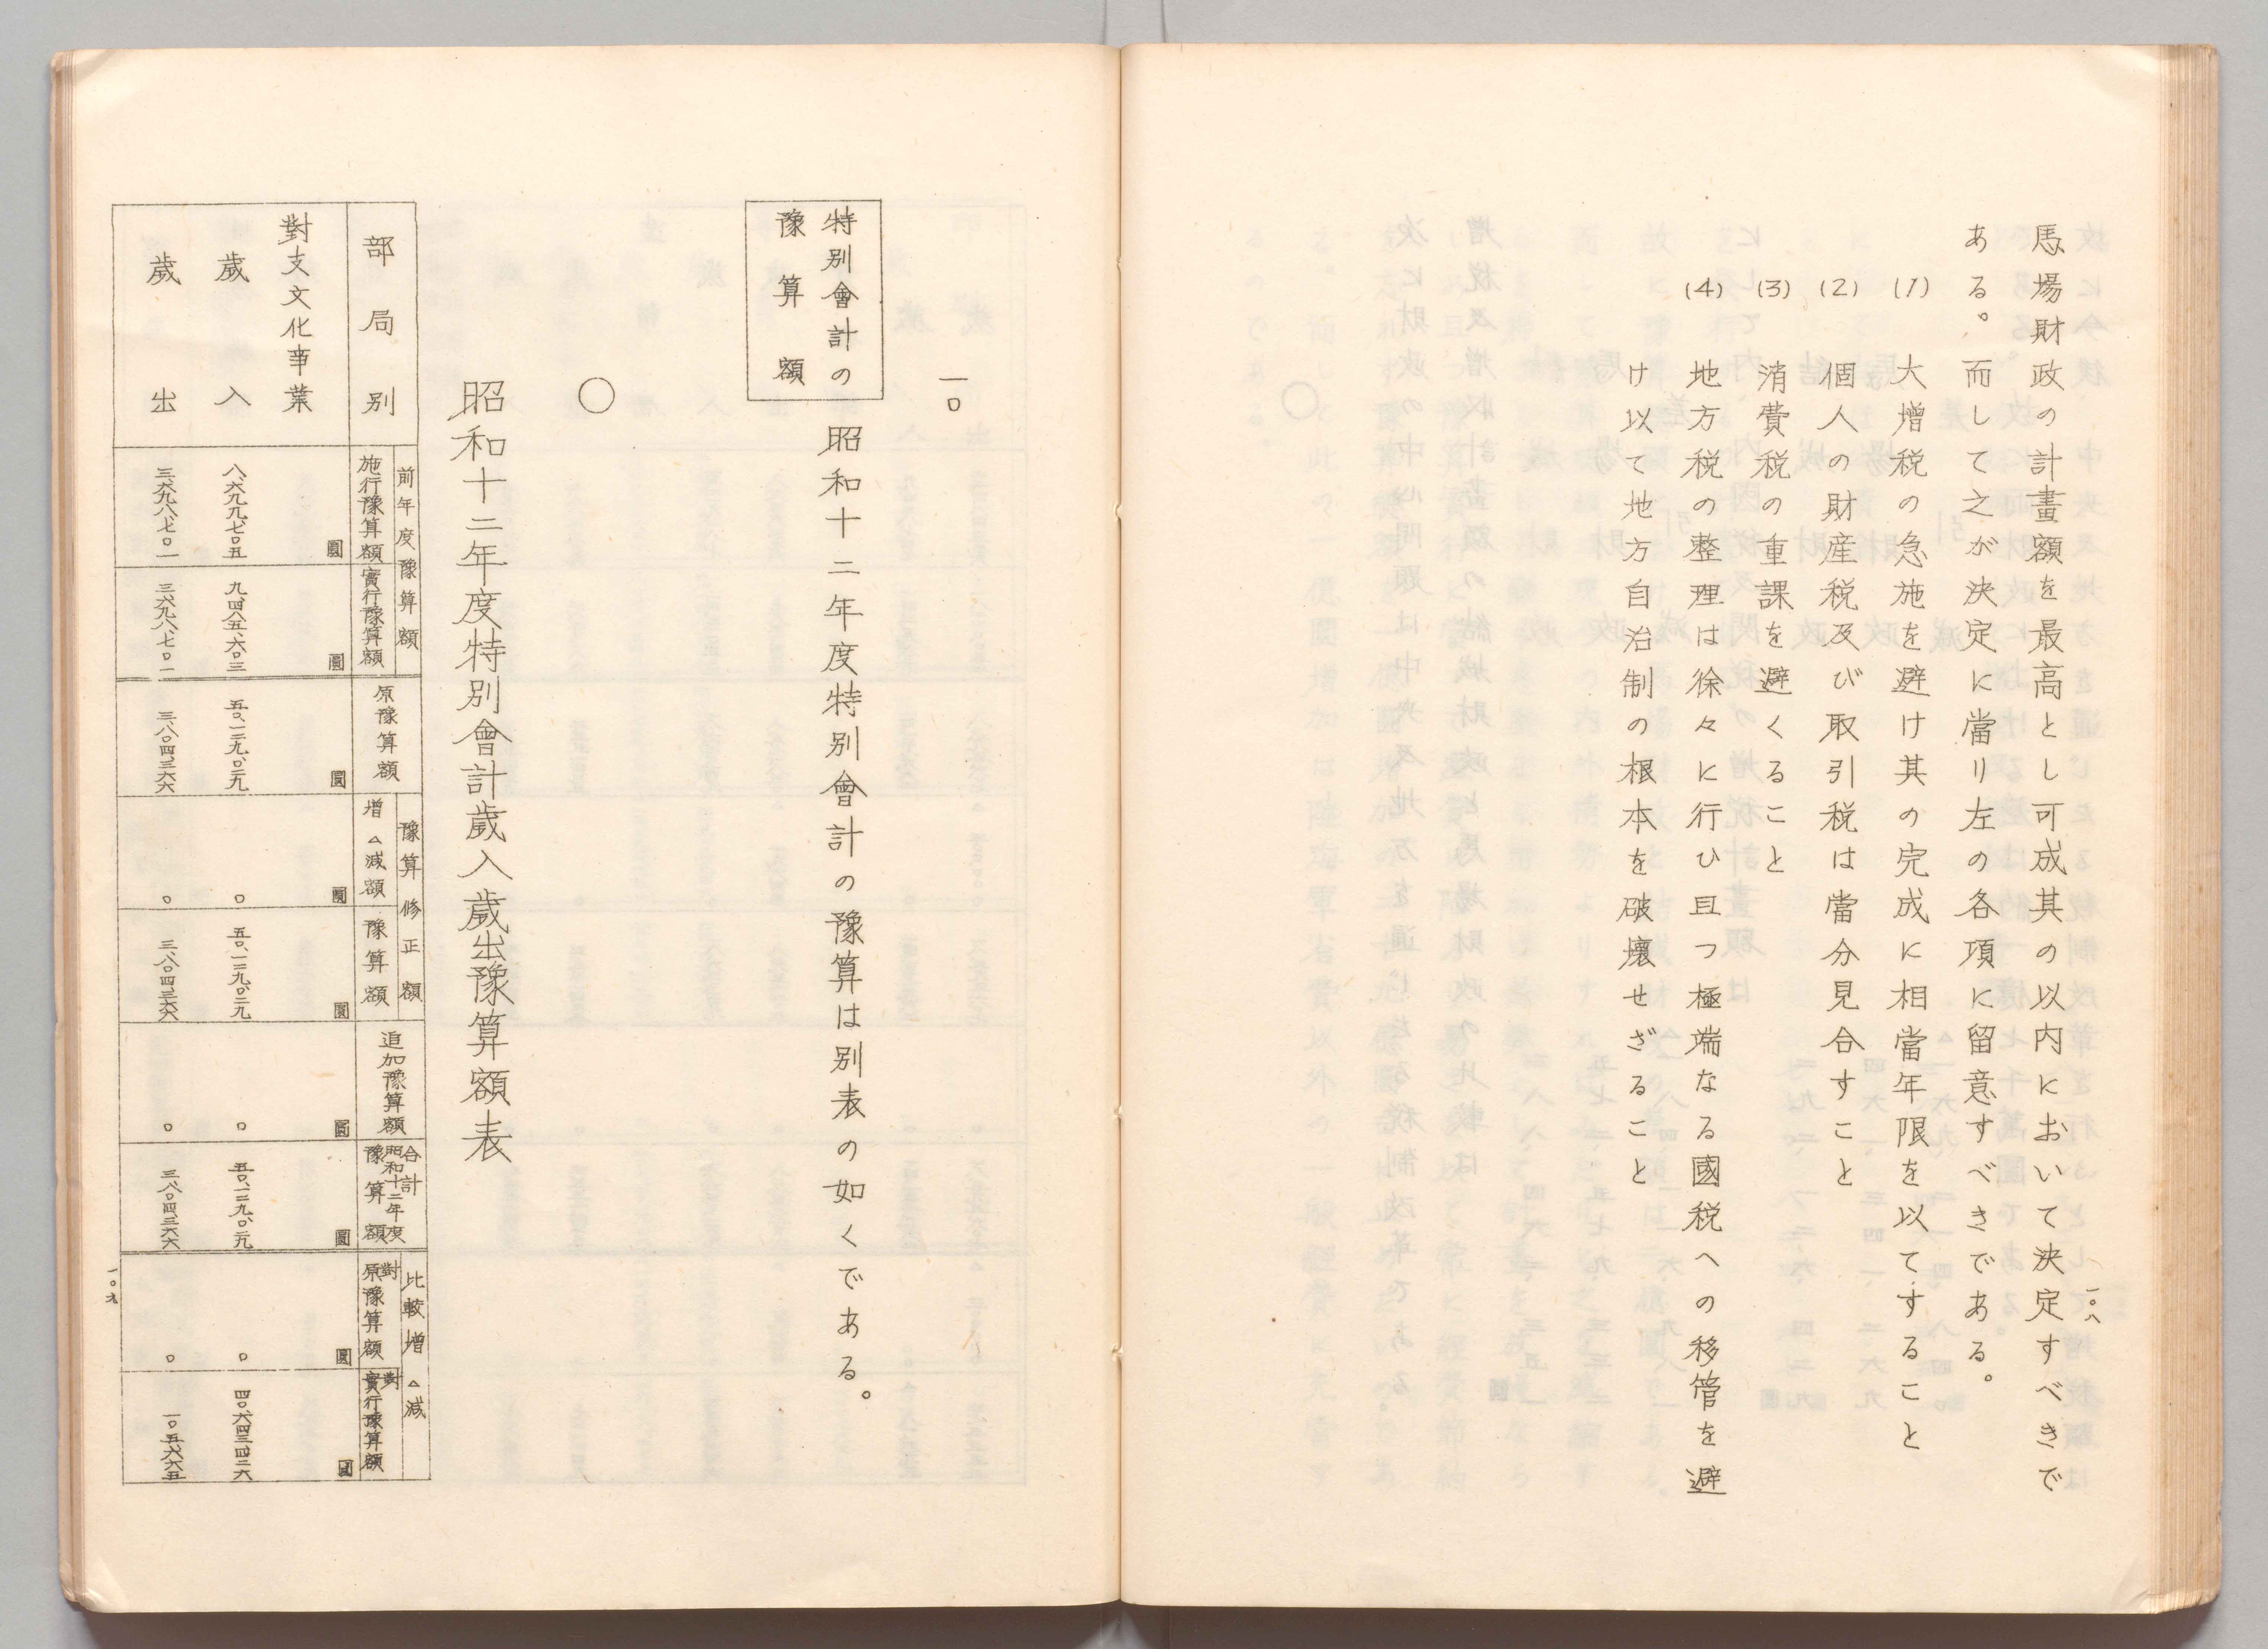 一〇八
馬場財政の計畫額を最高とし可成其の以内において決定すべきで
ある。而して之が決定に當り左の各項に留意すべきである。
(1) 大增税の急施を避け其の完成に相當年限を以てすること
(2) 個人の財産税及び取引税は當分見合すこと
(3) 消費税の重課を避くること
(4) 地方税の整理は徐々に行ひ且つ極端なる國税への移管を避
け以て地方自治制の根本を破壞せざること
一〇
特別會計の
豫算額
昭和十二年度特別會計の豫算は別表の如くである。
〇
昭和十二年度特別會計歳入歳出豫算額表
部局別
前年度豫算額
施行豫算額
實行豫算額
原豫算額
豫算修正額
增△減額
豫算額
追加豫算額
合計
昭和十二年度
豫算額
比較增△減
對原豫算額
對實行豫算額
對支文化事業
圓 圓 圓 圓 圓 圓 圓 圓 圓
歳入 八、六九九、七〇五 九、四八五、六〇三 五〇、一二九、〇二九 〇 五〇、一二九、〇二九 〇 五〇、一二九、〇二九 〇 四〇、六四三、四二六
歳出 三、六九八、七〇一 三、六九八、七〇一 三、八〇四、三六六 〇 三、八〇四、三六六 〇 三、八〇四、三六六 〇 一〇五、六六五
一〇九